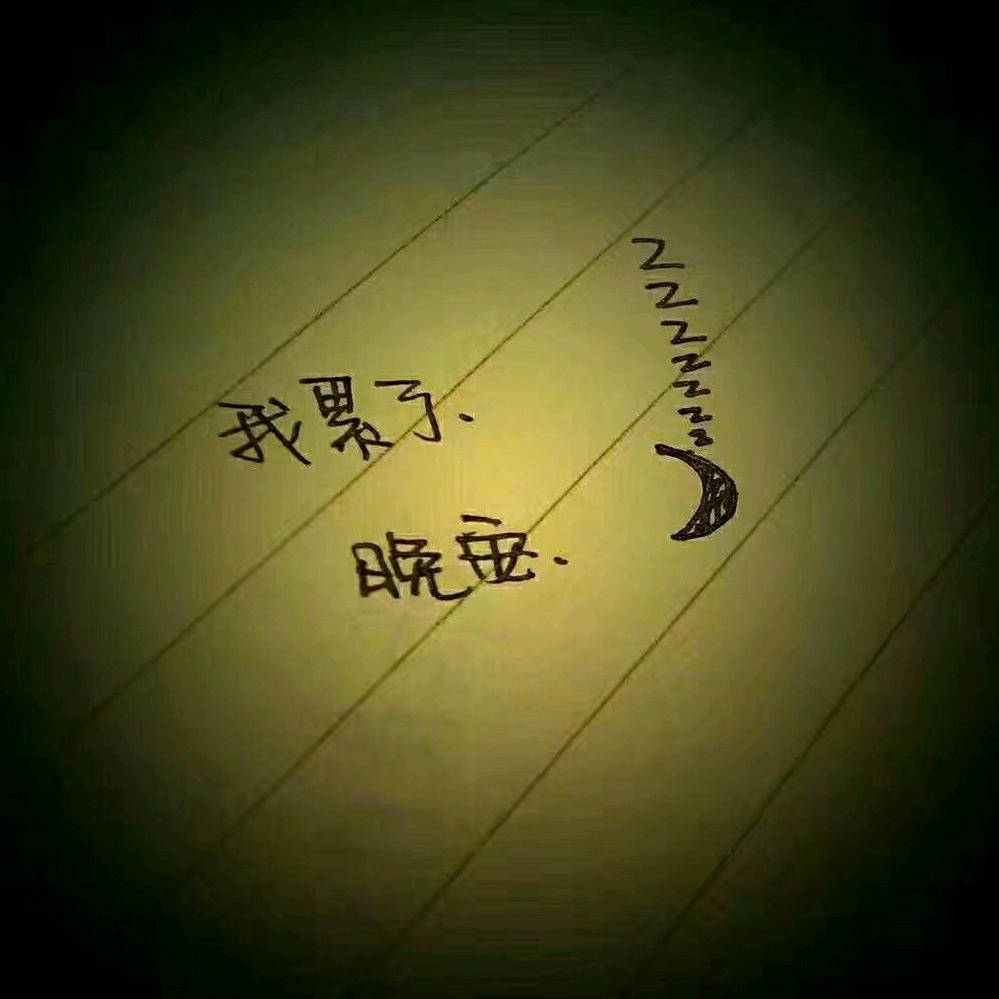 Z
Z
Z
Z
Z
Z
Z
Z
我累了.
晚安.